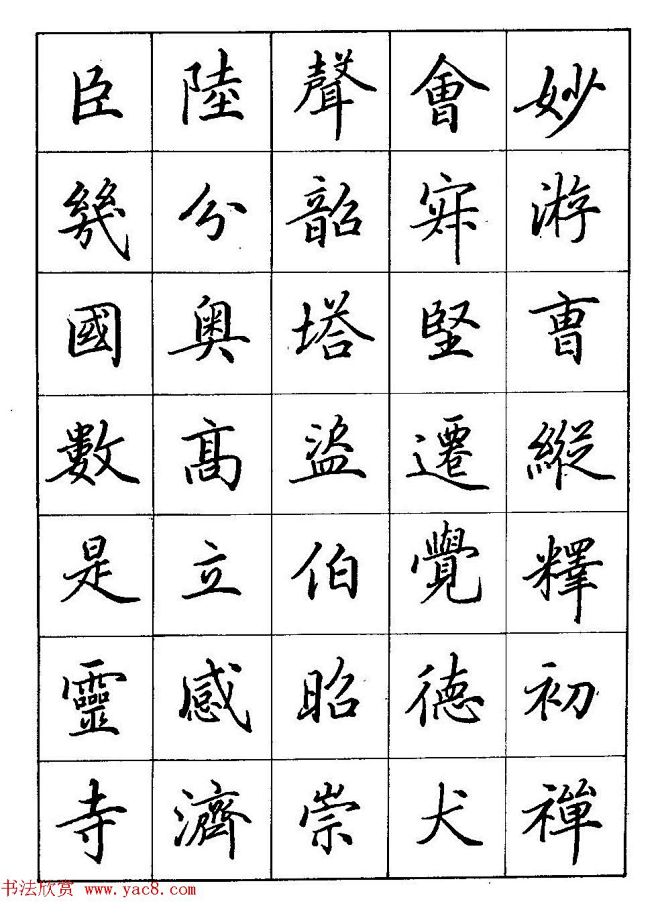 妙游曺縱釋初禪
會堅遷覺德犬
聲韶塔盜伯昭崇
陸分奧髙立感濟
臣幾國數是靈寺
书法欣赏 www.yac8.com